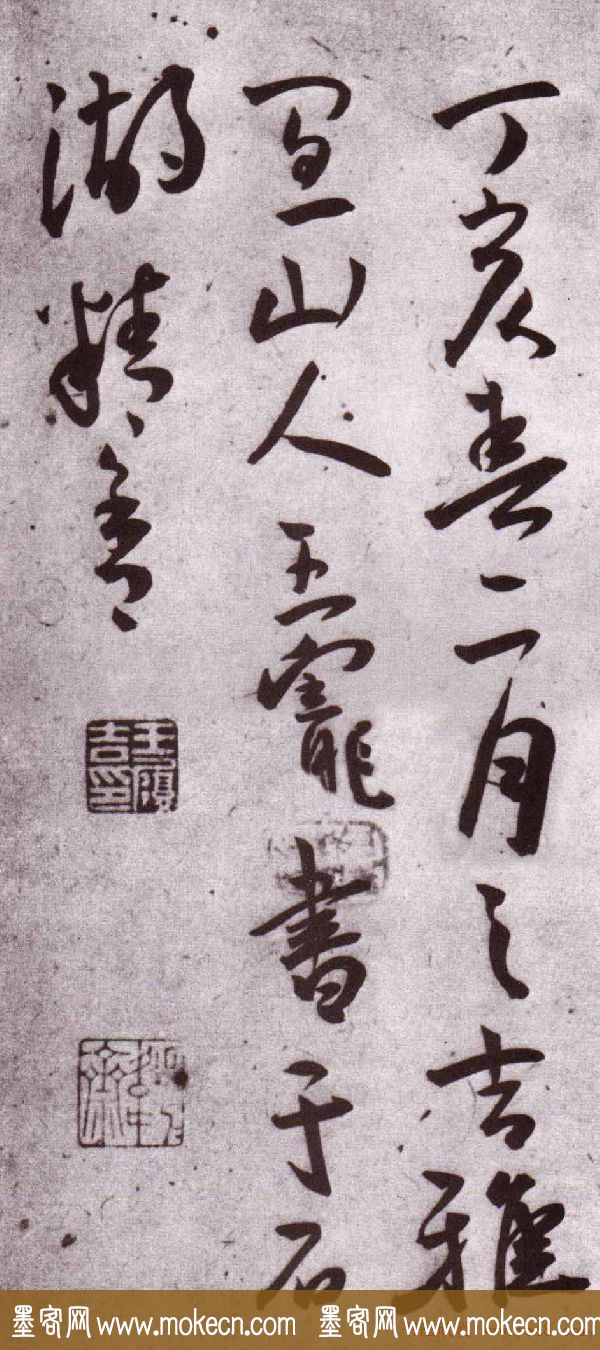 丁亥春二月之吉雅
宜山人王寵書于石
湖精舍
王履吉印
墨客网 www.mokecn.com 墨客网 www.mokecn.com